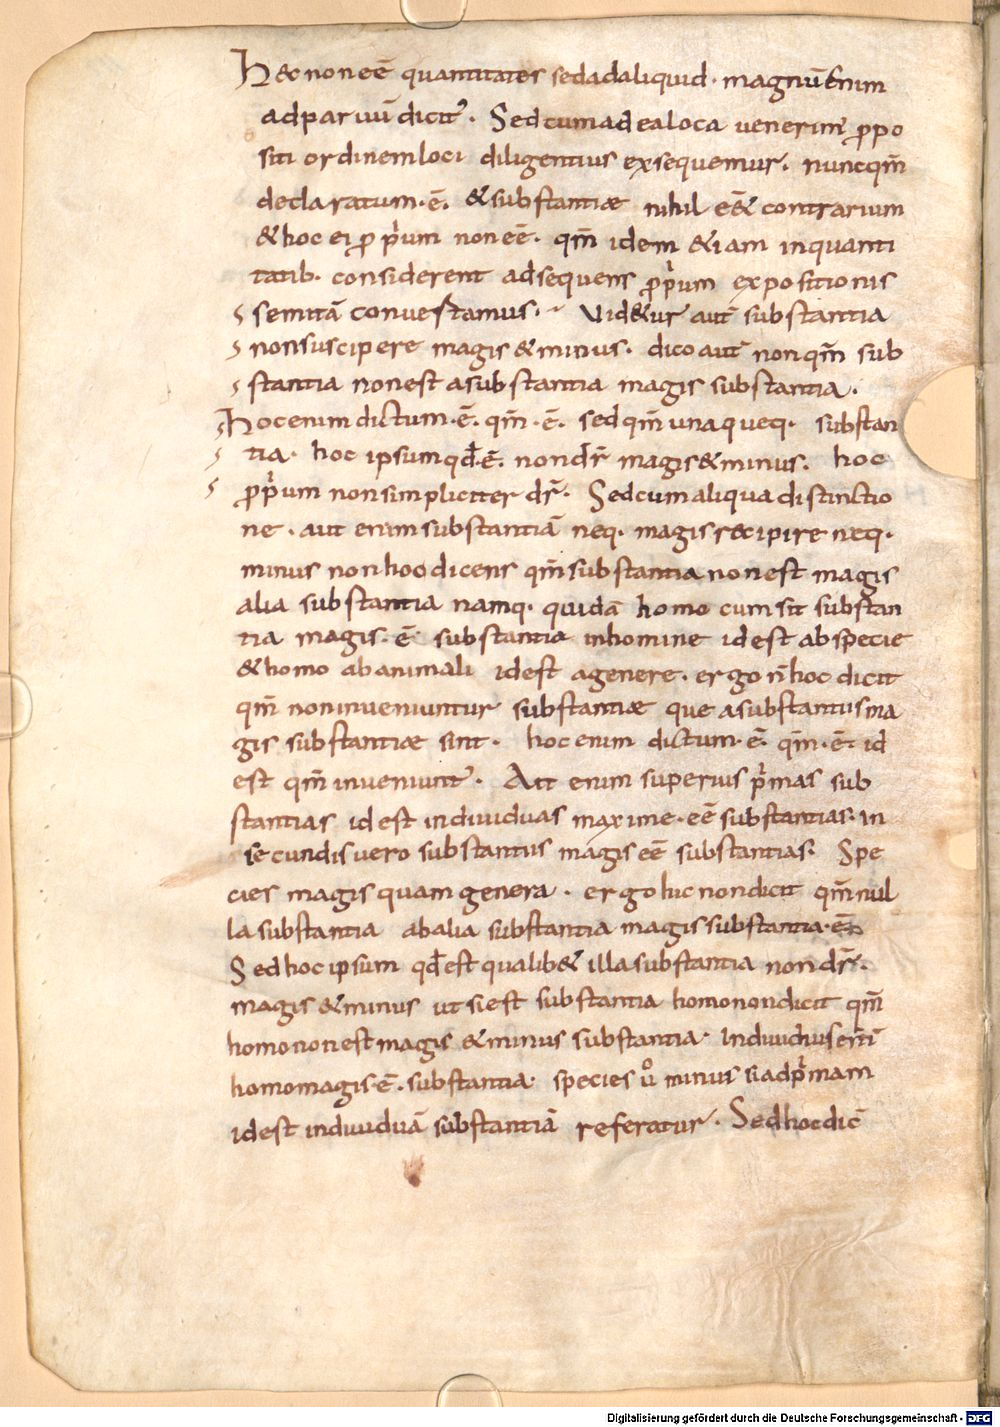 Hec non eē quantitates sed ad aliquid · magnū Enim
ad paruū dicit᷑ · Sed cum ad ea loca venerim᷒ ꝓpo
siti ordinem loci diligentius exsequemur · nunc qm̄
declaratum · ē · & substantiæ nihil eē & contrarium
& hoc ei ꝓprium non eē · qm̄ idem &iam in quanti
tatib· considerent ad sequens ꝓprium expositionis
semitā conuestamus · Uid&ur aut̄ substantia
non suscipere magis & minus · dico aut̄ non qm̄ sub
stantia non est a substantia magis substantia ·
Hoc enim dictum · ē · qm̄ · ē · sed qm̄ una queq· substan
tia · hoc ipsum qd̄ · ē · non dr̄ magis & minus · hoc
ꝓprium non simpliciter dr̄ · Sed cum aliqua distinctio
ne · ait enim substantiā neq· magis recipire neq·
minus non hoc dicens qm̄ substantia non est magis
alia substantia namq· quidā homo cum sit substan
tia magis · ē · substantia inhomine id est ab specie
& homo ab animali id est a genere · ergo n̄ hoc dicit
qm̄ non inveniuntur substantiæ que a substantiis ma
gis substantiæ sint · hoc enim dictum · ē · qm̄ · ē · id
est qm̄ inveniunt᷑ · Ait enim superius primas sub
stantias id est indiuiduas maxime · eē substantias · in
secundis uero substantiis magis eē substantias · Spe
cies magis quam genera · ergo huc non dicit qm̄ nul
la substantia ab alia substantia magis substantia · ē
Sed hoc ipsum qd̄ est qualib& illa substantia non dr̄ ·
magis & minus ut si est substantia homo non dicit qm̄
homo non est magis & minus substantia · Indiuiduus enī
homo magis · ē · substantia · species ů minus si ad primam
id est indiuiduā substantiā referatur · Sed hoc dic̄
Digitalisierung gefördert durch die Deutsche Forschungsgemeinschaft - DFG